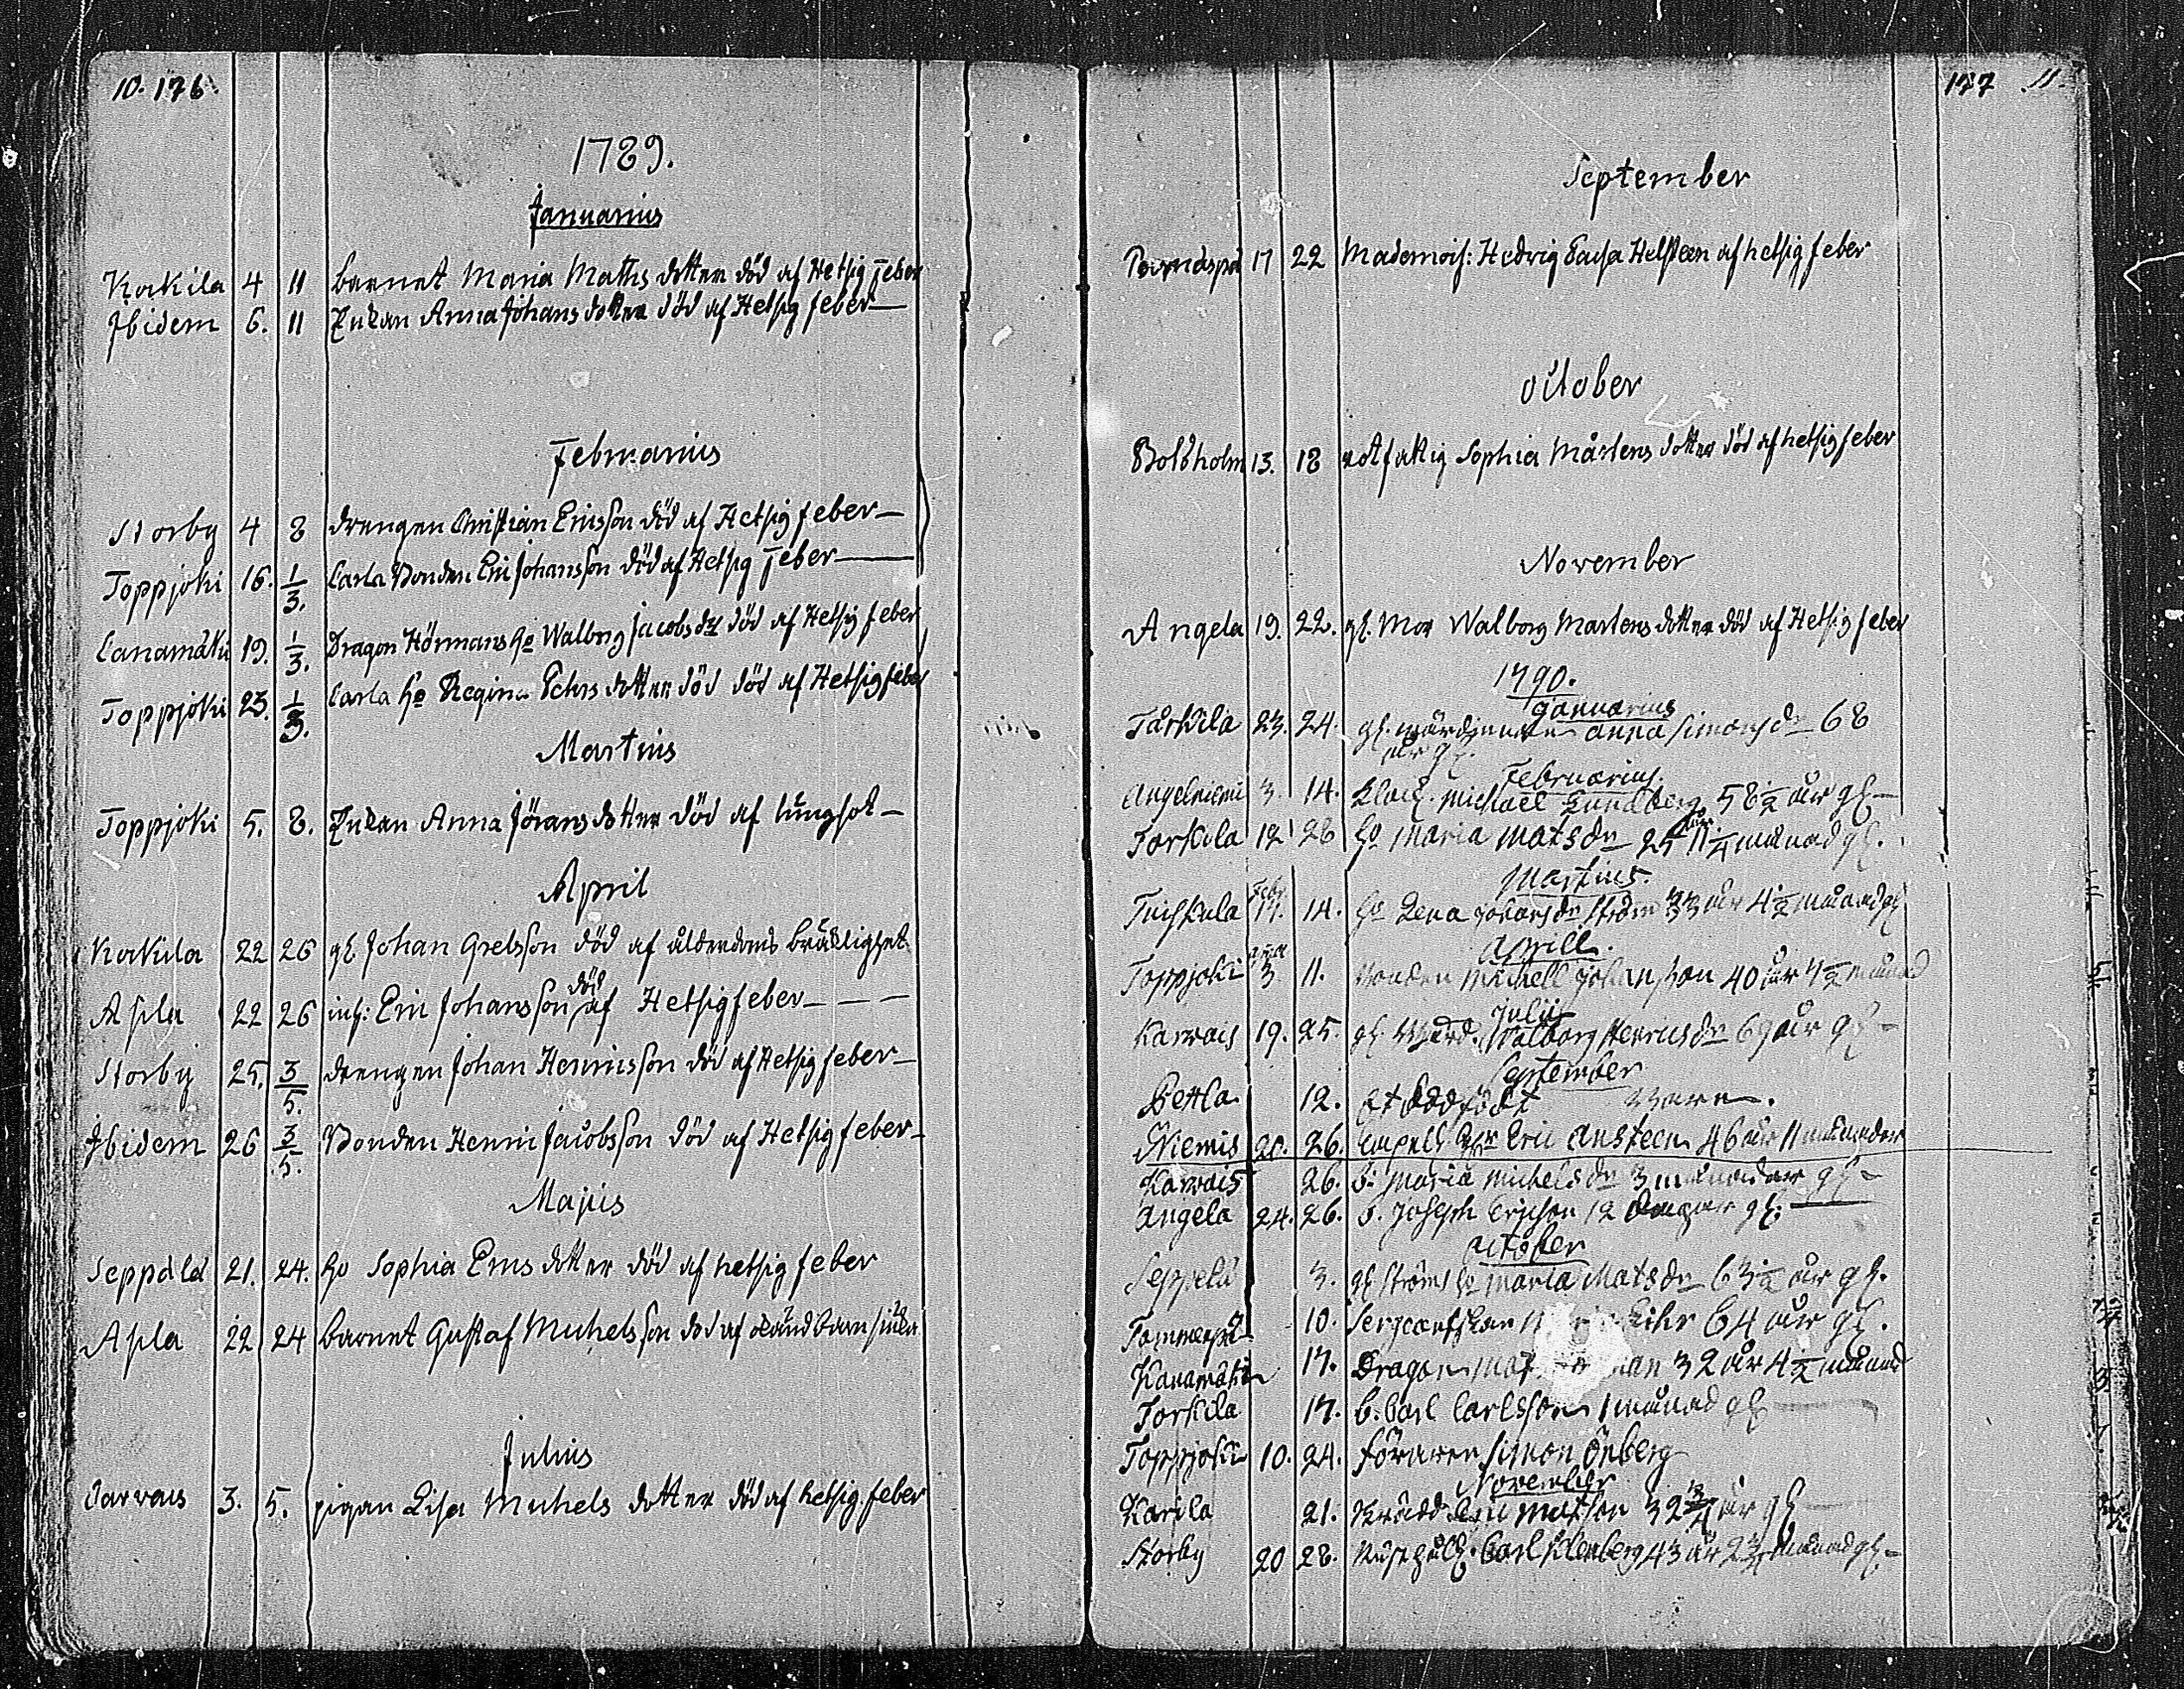 10. 176.
1789.
Januarius
Kokila 4 11 barnet Maria Maths dotter död af Hetsig feber
Ibidem 6. 11 Enkan Anna Johans dotter död af Hetsig feber —
Februarius
Storby 4 8 drengen Christian Ericsson död af Hetsig feber —
Toppjoki 16. 1/3. Carla Bonden Eric Johansson död af Hetsig feber —
Lanamäki 19. 1/3. Dragon Hörmans ho Walborg Jacobs dr död af Hetsig feber
Toppjoki 23. 1/3. Carla ho Regina Pehrs dotter död död af Hetsig feber
Martius
Toppjoki 5. 8. Enkan Anna Jörans dotter död af lungsot —
April
Kokila 22 26 gl Johan Grelsson död af ålderdoms bräcklighet
Aspla 22 26 inh: Eric Johansson död af Hetsig feber — — —
Storby 25. 3/5. drengen Johan Henricsson död af Hetsig feber —
Ibidem 26 3/5. Bonden Henric Jacobsson död af Hetsig feber —
Majus
Seppälä 21. 24. ho Sophia Erics dotter död af hetsig feber
Aspla 22 24 barnet Gustaf Michelsson död af
Julius
Carvais 3. 5. pigan Lisa Michels dotter död af hetsig feber
177 11.
September
17 22 Mademois: Hedvig Helsteen af hetsig feber
October
Boldholm 13. 18 rotfattig Sophia Mårtens dotter död af hetsig feber
November
Angela 19. 22. gl. Mor Walborg Martens dotter död af Hetsig feber
1790.
Januarius
Tårkila 23. 24. gl. anna Simons dr 68
år gl.
Februarius.
Angelniemi 3. 14. Klock. Michael Lundberg 58 1/2 år gl —
Torkila 12 28 ho Maria Mats dr 25 år 11 1/4 månad gl.
Martius.
Tuiskula Febr. 17. 14. ho Lena Johans dr Ström 33 år 4 1/2 månad gl
Aprill.
Toppjoki 3 11. Bonden Michell Johansson 40 år 4 1/2 månad
Julii
Karvais 19. 25. gl. Wärd. Walborg Henrics dr 69 år gl —
September
Pettla 12. Et dödfödt Barn.
Niemis 20. 26. Capell. Eric Ansteen 46 år 11 månader
Karvais 26. b. Maria Michels dr 3 månader gl —
Angela 24. 26. b. Joseph Ericson 12 dagar gl. —
October
Seppälä 3. gl Ströms ho Maria Mats dr 63 1/2 år gl.
10. 64 år gl.
Lanamäki 17. Dragon 32 år 4 1/2 månad
Torkila 17. b. Carl Carlsson 1 månad gl —
Toppjoki 10. 24. Föraren Simon Önberg
November
Karila 21. Matson 32 3/4 år gl —
Storby 20 28. Carl 43 år 2 månad gl —